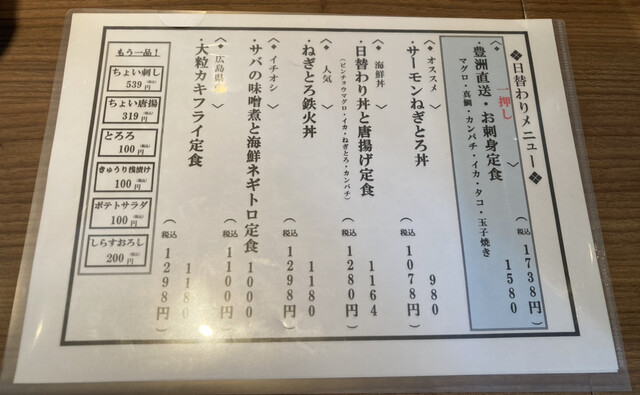 ❖日替わりメニュー❖
〈 一押し 〉
・豊洲直送・お刺身定食
マグロ・真鯛・カンパチ・イカ・タコ・玉子焼き
1580
(税込1738円)
〈*オススメ 〉
・サーモンねぎとろ丼
980
(税込1078円)
〈* 海鮮丼 〉
・日替わり丼と唐揚げ定食
(ビンチョウマグロ・イカ・ねぎとろ・カンパチ)
1164
(税込1280円)
〈* 人気 〉
・ねぎとろ鉄火丼
1180
(税込1298円)
〈* イチオシ 〉
・サバの味噌煮と海鮮ネギトロ定食
1000
(税込1100円)
〈* 広島県 〉
・大粒カキフライ定食
1180
(税込1298円)
もう一品!
ちょい刺し
539円(税込)
ちょい唐揚
319円(税込)
とろろ
100円(税込)
きゅうり浅漬け
100円(税込)
ポテトサラダ
100円(税込)
しらすおろし
200円(税込)